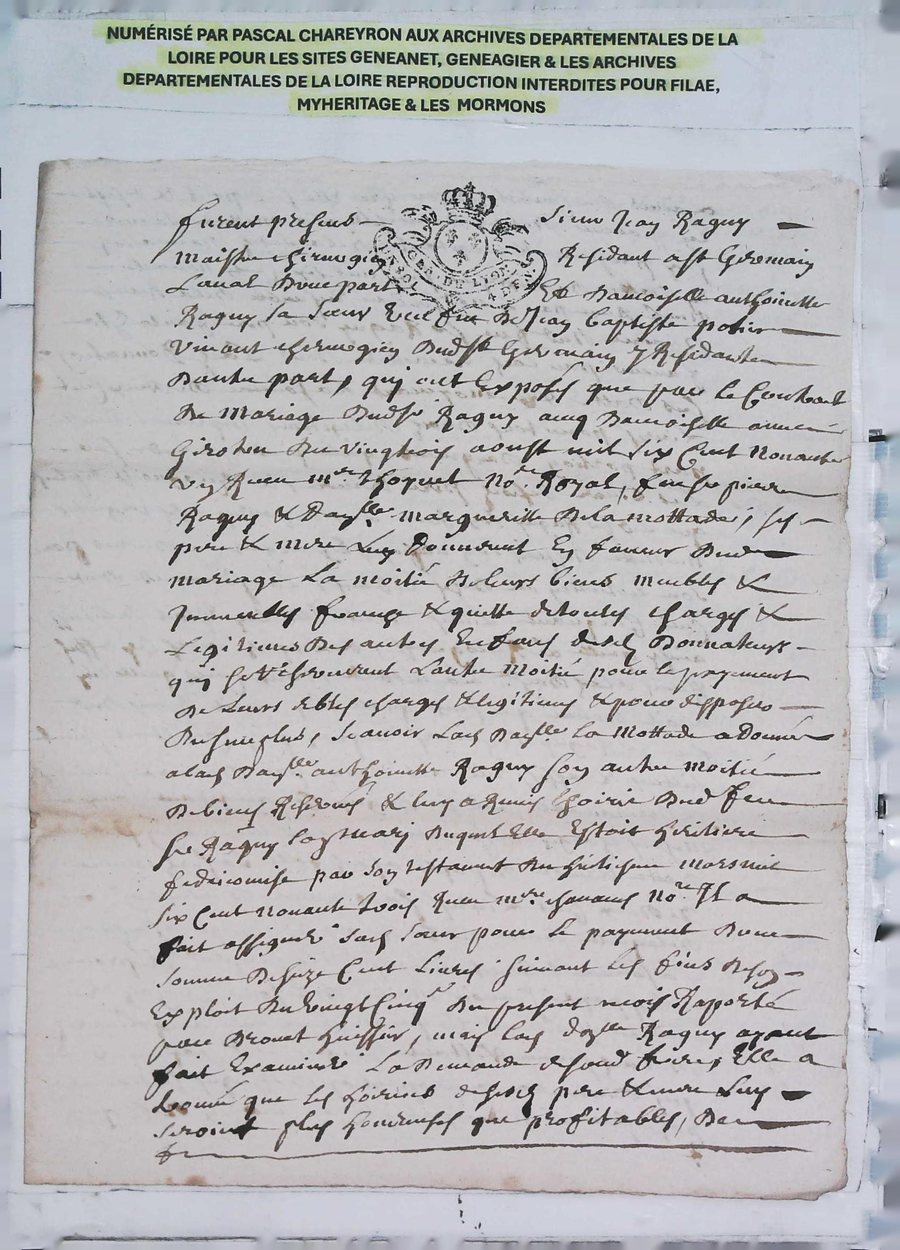 NUMÉRISÉ PAR PASCAL CHAREYRON AUX ARCHIVES DEPARTEMENTALES DE LA
LOIRE POUR LES SITES GENEANET, GENEAGIER & LES ARCHIVES
DEPARTEMENTALES DE LA LOIRE REPRODUCTION INTERDITES POUR FILAE,
MYHERITAGE & LES MORMONS
furent presens sieur Jean Raguy
maistre chirurgien Residant a st Germain
Laual Dune part Et Damoiselle anthoinette
Raguy sa soeur veufue De Jean baptiste
viuant chirurgien Dudst Germain y Residante
Dautre part, qui ont Exposés que par le Contract
De mariage Dudsr Raguy aueq Damoiselle
Du aoust mil six Cent nonante
Receu mre No.re Royal, feu sr pierre
Raguy & Dayslle margueritte De la mottade, ses
pere & mere Luy Donnerent En faueur Dud
mariage La moitié De leurs biens meubles &
Immeubles franche & quitte de toutes charges &
Legitimes Des autres Enfans desd Donnateurs
qui se Reseruerent Lautre moitié pour le payement
De Leurs debtes charges & legitimes & pour disposer
Du surplus, scauoir Lad Dayslle La Mottade a donné
a lad Dayslle anthoinette Raguy son autre moitié
De biens Reserués & luy a Remis Lhoirie Dud feu
sr Raguy son mary Duquel Elle Estoit heritiere
par son testament Du mars mil
six Cent nonant trois Receu mre No.re Il a
fait assigner sad soeur pour le payement Dune
somme De seize Cent Liures suiuant les fins De son
Exploit Du vingt Cinq Du present mois Raporté
par huissier, mais lad dayslle Raguy ayant
fait Examiner La Demande de sond frere, Elle a
trouué que les hoiries de sesd pere & mere Luy
seroint plus honereuses que profitables, De